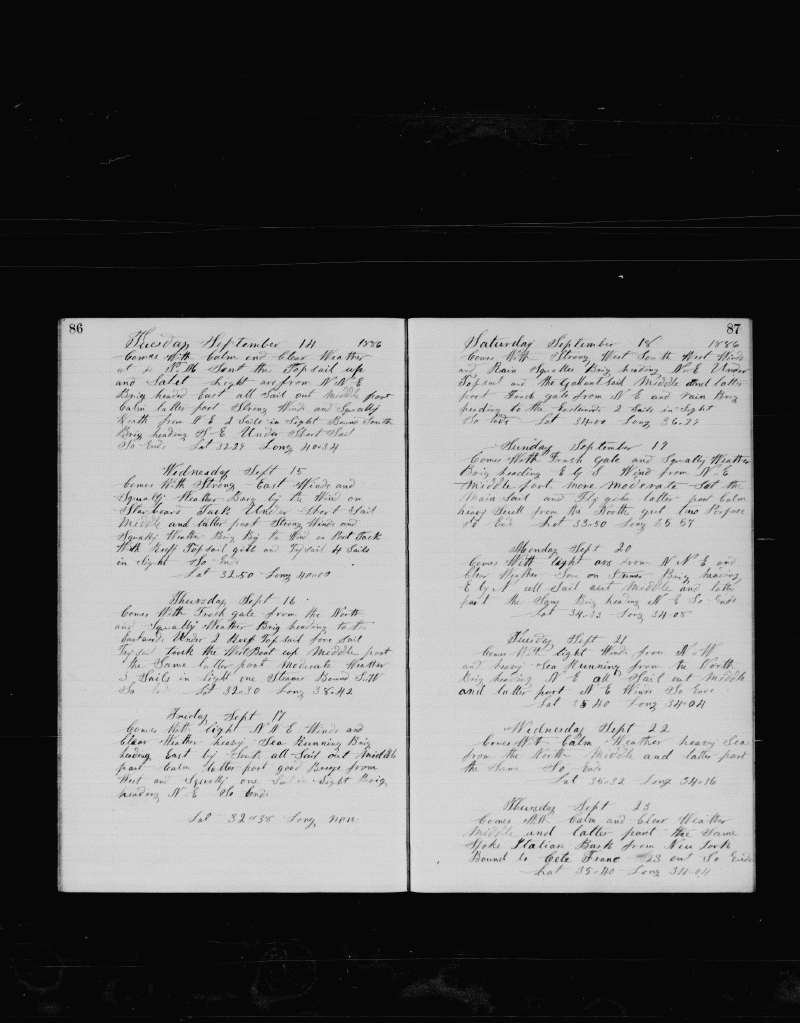 86
Tuesday September 14 1886
Comes With Calm and Clear Weather
at 2 P M Sent the Topsail up
and Light airs from N N E
Brig headed East all Sail out Middle part
Calm latter part Strong Winds and Squally
Weath from N E 2 Sails in Sight Bound South
Brig heading S E Under Short Sail
So Ends Lat 32.29 Long 40.34
Wednesday Sept 15
Comes With Strong East Winds and
Squally Weather Brig by the Wind on
Starboard Tack Under Short Sail
Middle and latter part Strong Winds and
Squally Weather Brig By the Wind on Port Tack
With Reeff Topsail gibb and Trysail 4 Sails
in Sight So Ends
Lat 32.50 Long 40.00
Thursday Sept 16
Comes With Fresh gale from the North
and Squally Weather Brig heading to the
Eastward Under 2 Reef Topsail fore Sail
Trysail Took the Boat up Middle part
the Same latter part Moderate Weather
3 Sails in Sight one Steamer Bound
So Ends Lat 32-30 Long 38-42
Friday Sept 17
Comes With light N N E Winds and
Clear Weather heavy Sea Running Brig
heading East by South all Sail out Middle
part Calm latter part good Breeze from
West and Squally one Sail in Sight Brig
heading N E So Ends
Lat 32-38 Long non
87
Saturday September 18 1886
Comes With Strong West South West Winds
and Rain Squalles Brig heading N E Under
Topsail and the Galantsail Middle and latter
part Fresh gale from N E and rain Brig
heading to the Eastward 2 Sails in Sight
So Ends Lat 34-00 Long 36-29
Sunday September 19
Comes With Fresh Gale and Squally Weather
Brig heading E by S Wind from N E
Middle part more Moderate Set the
Main Sail and latter part Calm
heavy Swell from the North got two Porpose
So End Lat 33-50 Long 35 57
Monday Sept 20
Comes With light ars from N N E and
Clear Weather Brig heading
E by N all Sail out Middle and latter
part the Same Brig heading N E So Ends
Lat 34-33 Long 34-08
Tuesday Sept 21
Comes With light Winds from N W
and heavy Sea Running from the North
Brig heading N E all Sail out Middle
and latter part N E Winds So Ends
Lat 35 40 Long 34-04
Wednesday Sept 22
Comes With Calm Weather heavy Sea
from the North Middle and latter part
the Same So Ends
Lat 35-32 Long 34-16
Thursday Sept 23
Comes With Calm and Clear Weather
Middle and latter part the Same
Spoke Italian Bark from New York
Bound to Cete Franc 23 out So Ends
Lat 35-40 Long 34-04